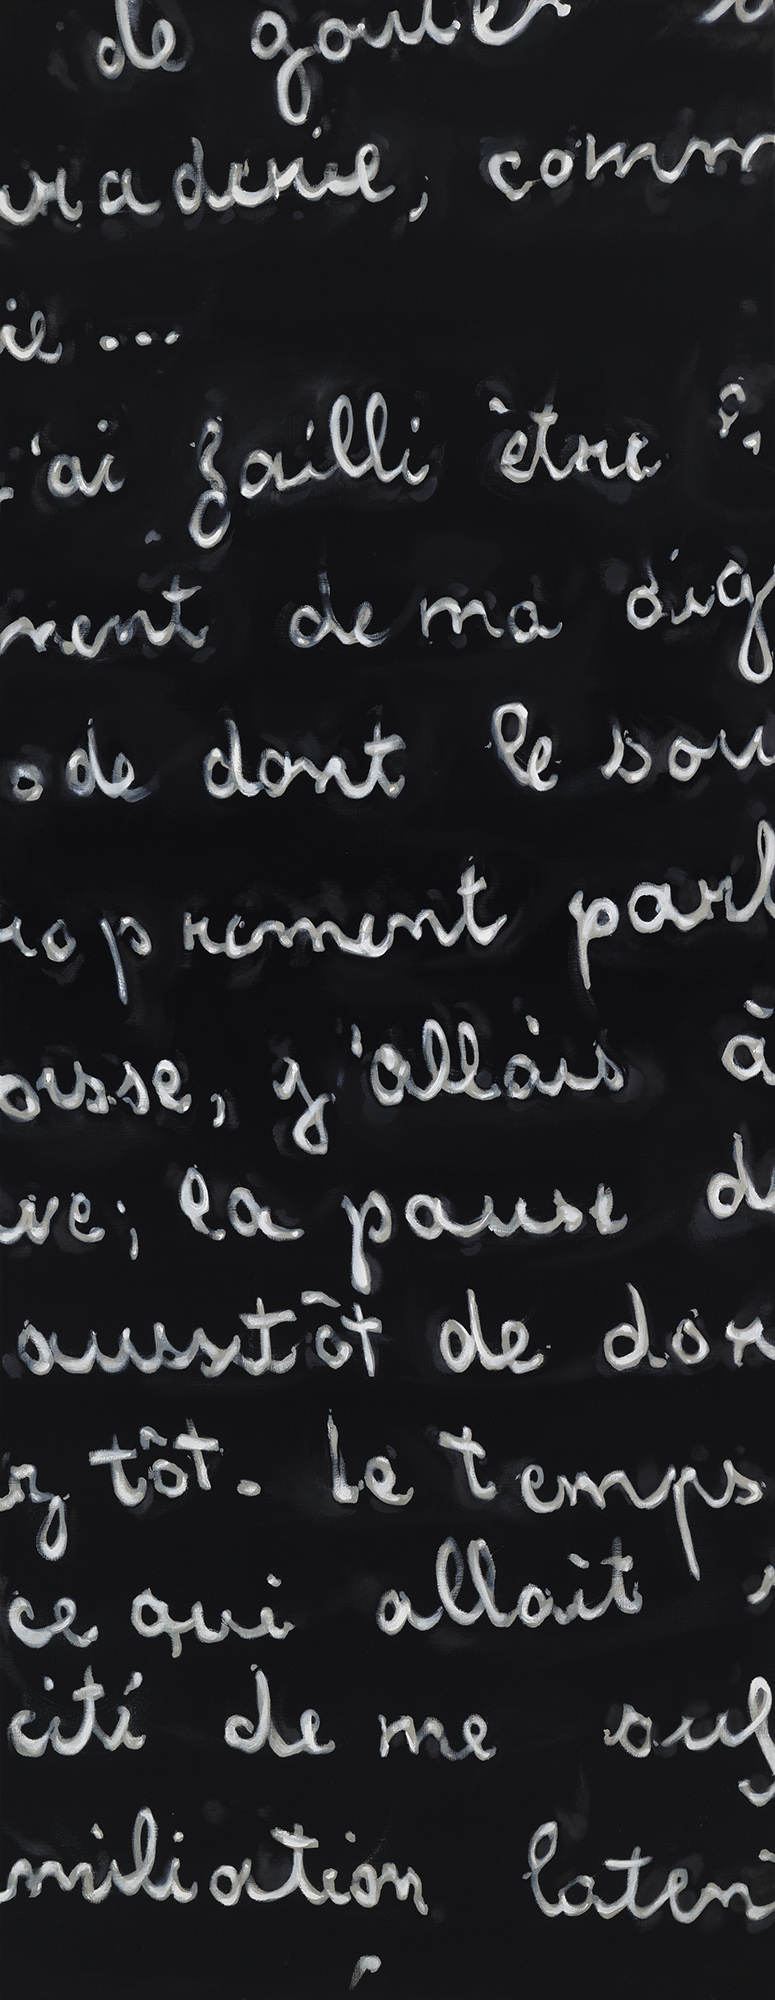 de goûter
raderie, comm
ie ...
j'ai failli être
ment de ma dig
ode dont le sou
roprement parl
oisse, j'allais à
ve; la pause d
aussitôt de dor
ez tôt. Le temps
ce qui allait
cité de me suf
miliation laten